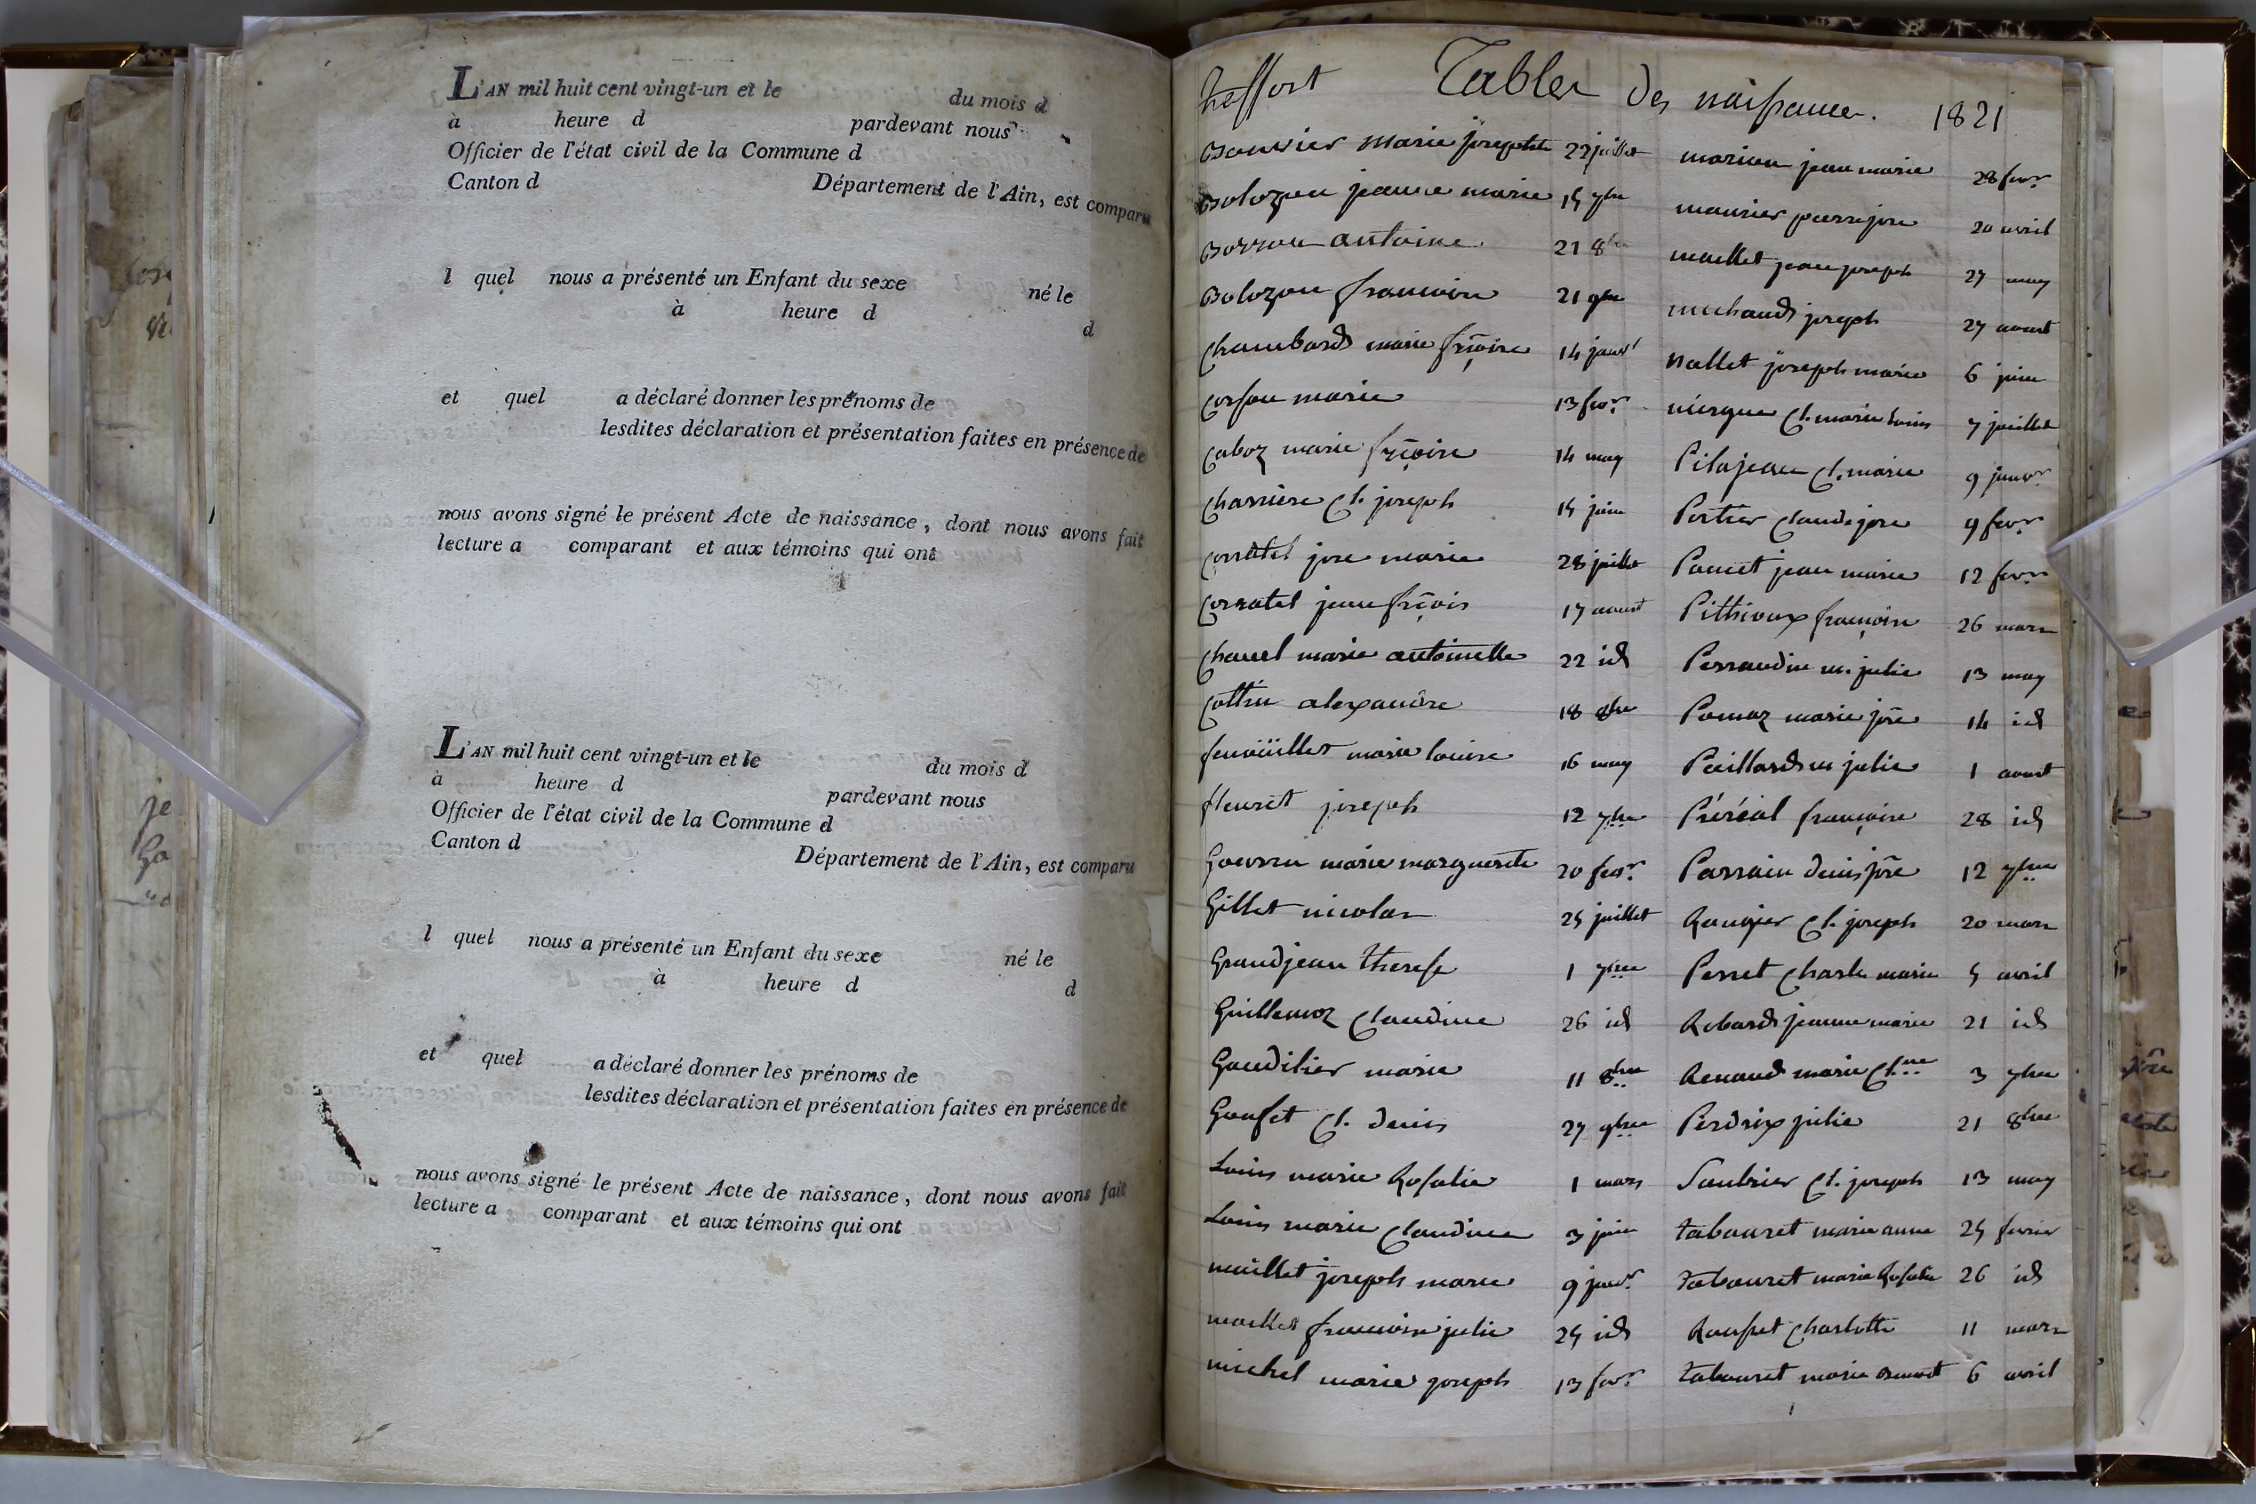 L'AN mil huit cent vingt-un et le du mois d
à heure d pardevant nous
Officier de l'état civil de la Commune d
Canton d Département de l'Ain, est comparu
l quel nous a présenté un Enfant du sexe né le
à heure d d
et quel a déclaré donner les prénoms de
lesdites déclaration et présentation faites en présence de
nous avons signé le présent Acte de naissance, dont nous avons fait
lecture a comparant et aux témoins qui ont
L'AN mil huit cent vingt-un et le du mois d
à heure d pardevant nous
Officier de l'état civil de la Commune d
Canton d Département de l'Ain, est comparu
l quel nous a présenté un Enfant du sexe né le
à heure d d
et quel a déclaré donner les prénoms de
lesdites déclaration et présentation faites en présence de
nous avons signé le présent Acte de naissance, dont nous avons fait
lecture a comparant et aux témoins qui ont
treffort Tables des naissances. 1821
Bouvier marie josephte 22 juillet
Bolozon jeanne marie 15 7bre
Borron antoine 21 8bre
Bolozon francoise 21 9bre
chambard marie frçoise 14 janvr
corsou marie 13 fevr
caboz marie frçoise 14 may
charriere Cl. joseph 15 juin
corratel jose marie 28 juillet
corratel jean frçois 17 aoust
chanel marie antoinette 22 id
cottin alexandre 18 8bre
fenoüillet marie louise 16 may
fleuret joseph 12 7bre
Gouvrin marie marguerite 20 fevr
Gillet nicolas 25 juillet
Grandjean therese 1 7bre
Guillemoz claudine 26 id
Gaudilier marie 11 8bre
Gouset Cl. denis 27 9bre
Louis marie Rosalie 1 mars
Louis marie claudine 3 juin
maillet joseph marie 9 janvr
francoise julie 25 id
michel marie joseph 13 fevr
marion jean marie 28 fevr
maurier pierre jose 20 avril
maillet jean joseph 27 may
mechaud joseph 27 aoust
nallet joseph marie 6 juin
niergue Cl. marie louis 7 juillet
Pilajeau Cl. marie 9 janvr
Portier claude jose 9 fevr
Poncet jean marie 12 fevr
Pithioux françoise 26 mars
Perraudin m. julie 13 may
Pomaz marie jose 14 id
Paillard m julie 1 aoust
Préréal françoise 28 id
Parrain denis jose 12 7bre
Rougier Cl. joseph 20 mars
Perret charle marie 5 avril
Robard jeanne marie 21 id
Renaud marie Cl.ne 3 7bre
Perdrix julie 21 8bre
Saubrier Cl. joseph 13 may
tabouret marie anne 25 fevrier
tabouret marie Rosalie 26 id
Rousset charlotte 11 mars
tabouret marie benoit 6 avril